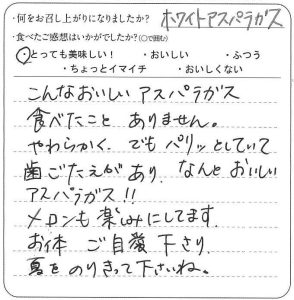 ・何をお召し上がりになりましたか? ホワイトアスパラガス
・食べたご感想はいかがでしたか?(○で囲む)
・とっても美味しい! ・おいしい ・ふつう
・ちょっとイマイチ ・おいしくない
こんなおいしい アスパラガス
食べたこと ありません。
やわらかく、でもパリッとしていて
歯ごたえがあり、なんとおいしい
アスパラガス!!
メロンも楽しみにしてます。
お体 ご自愛 下さり、
夏を のりきって下さいね。